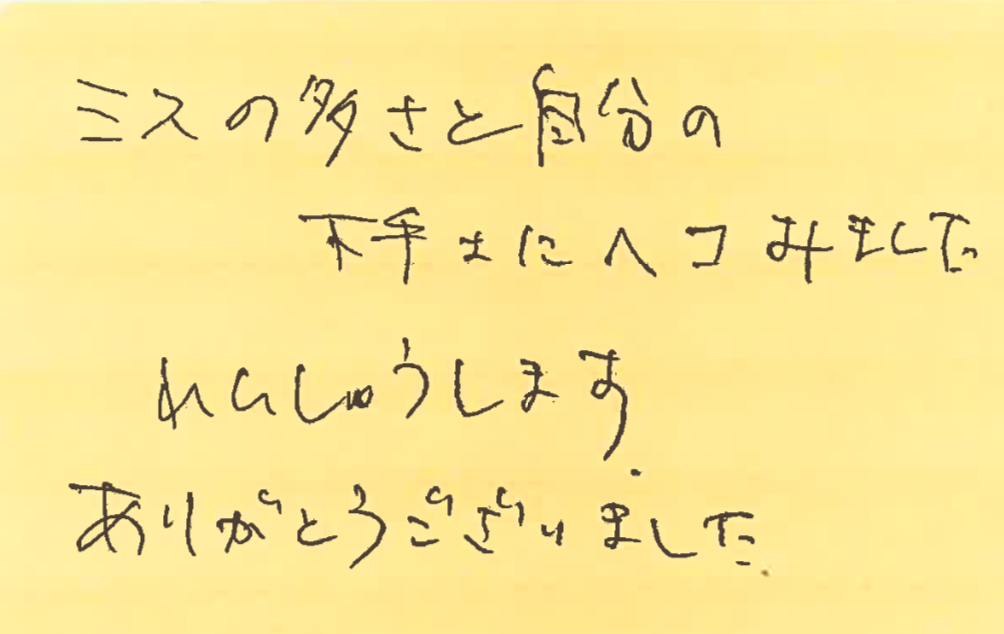 ミスの多さと自分の
下手さにヘコみました
れんしゅうします.
ありがとうございました.